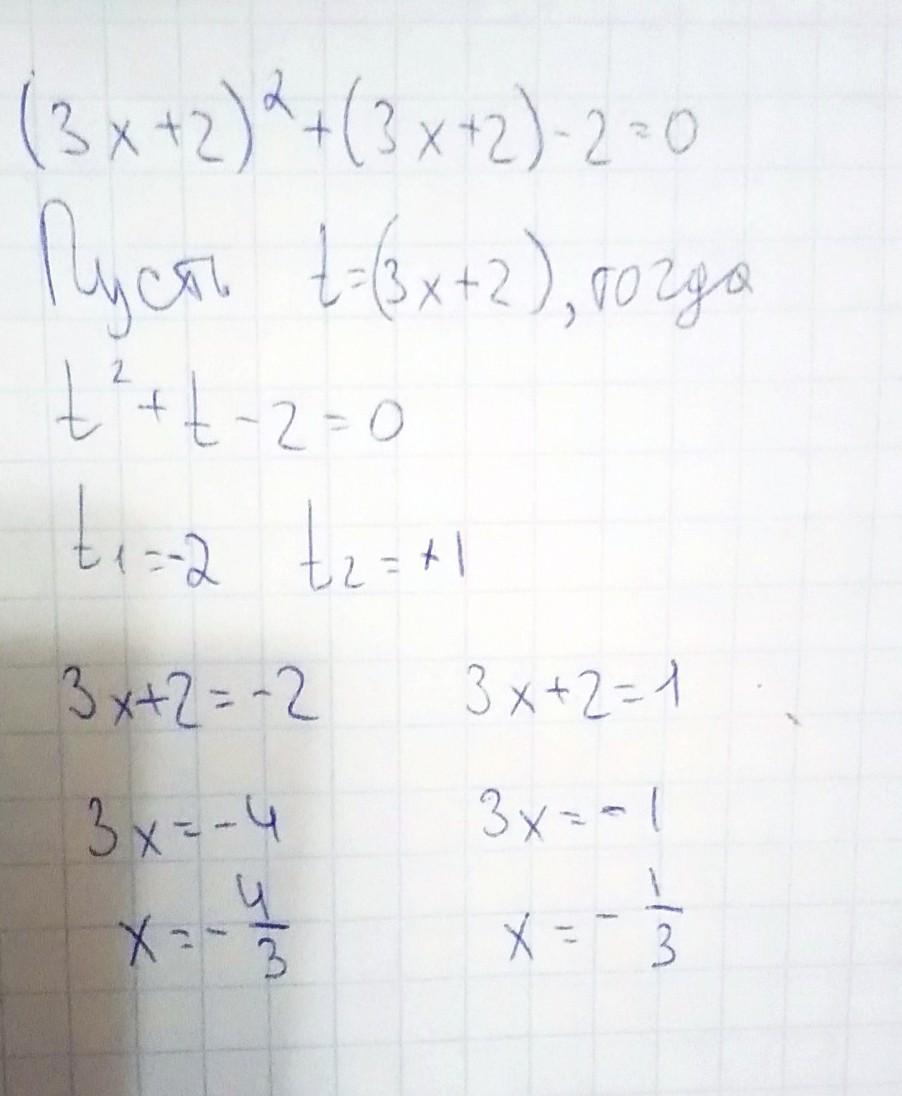 (3x+2)²+(3x+2)-2=0
Пусть t=(3x+2), тогда
t²+t-2=0
t₁=-2 t₂=+1
3x+2=-2 3x+2=1
3x=-4 3x=-1
x=-4/3 x=-1/3